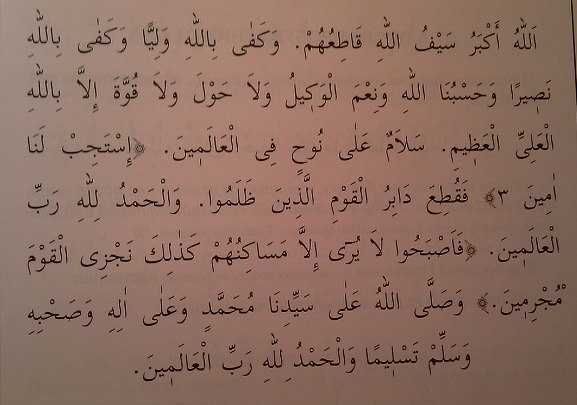 اَللّٰهُ أَكْبَرُ سَيْفُ اللّٰهِ قَاطِعُهُمْ. وَكَفٰى بِاللّٰهِ وَلِيًّا وَكَفٰى بِاللّٰهِ
نَصِيرًا وَحَسْبُنَا اللّٰهِ وَنِعْمَ الْوَكِيلُ وَلاَ حَوْلَ وَلاَ قُوَّةَ إِلاَّ بِاللّٰهِ
الْعَلِىِّ الْعَظِيمِ. سَلاَمٌ عَلٰى نُوحٍ فِى الْعَالَمِينَ. ﴿إِسْتَجِبْ لَنَا
اٰمِينَ ٣﴾ فَقُطِعَ دَابِرُ الْقَوْمِ الَّذِينَ ظَلَمُوا. وَالْحَمْدُ لِلّٰهِ رَبِّ
الْعَالَمِينَ. ﴿فَاَصْبَحُوا لاَ يُرٰٓى إِلاَّ مَسَاكِنُهُمْ كَذٰلِكَ نَجْزِى الْقَوْمَ
الْمُجْرِمِينَ.﴾ وَصَلَّى اللّٰهُ عَلٰى سَيِّدِنَا مُحَمَّدٍ وَعَلٰى اٰلِهِ وَصَحْبِهِ
وَسَلِّمْ تَسْلِيمًا وَالْحَمْدُ لِلّٰهِ رَبِّ الْعَالَمِينَ.